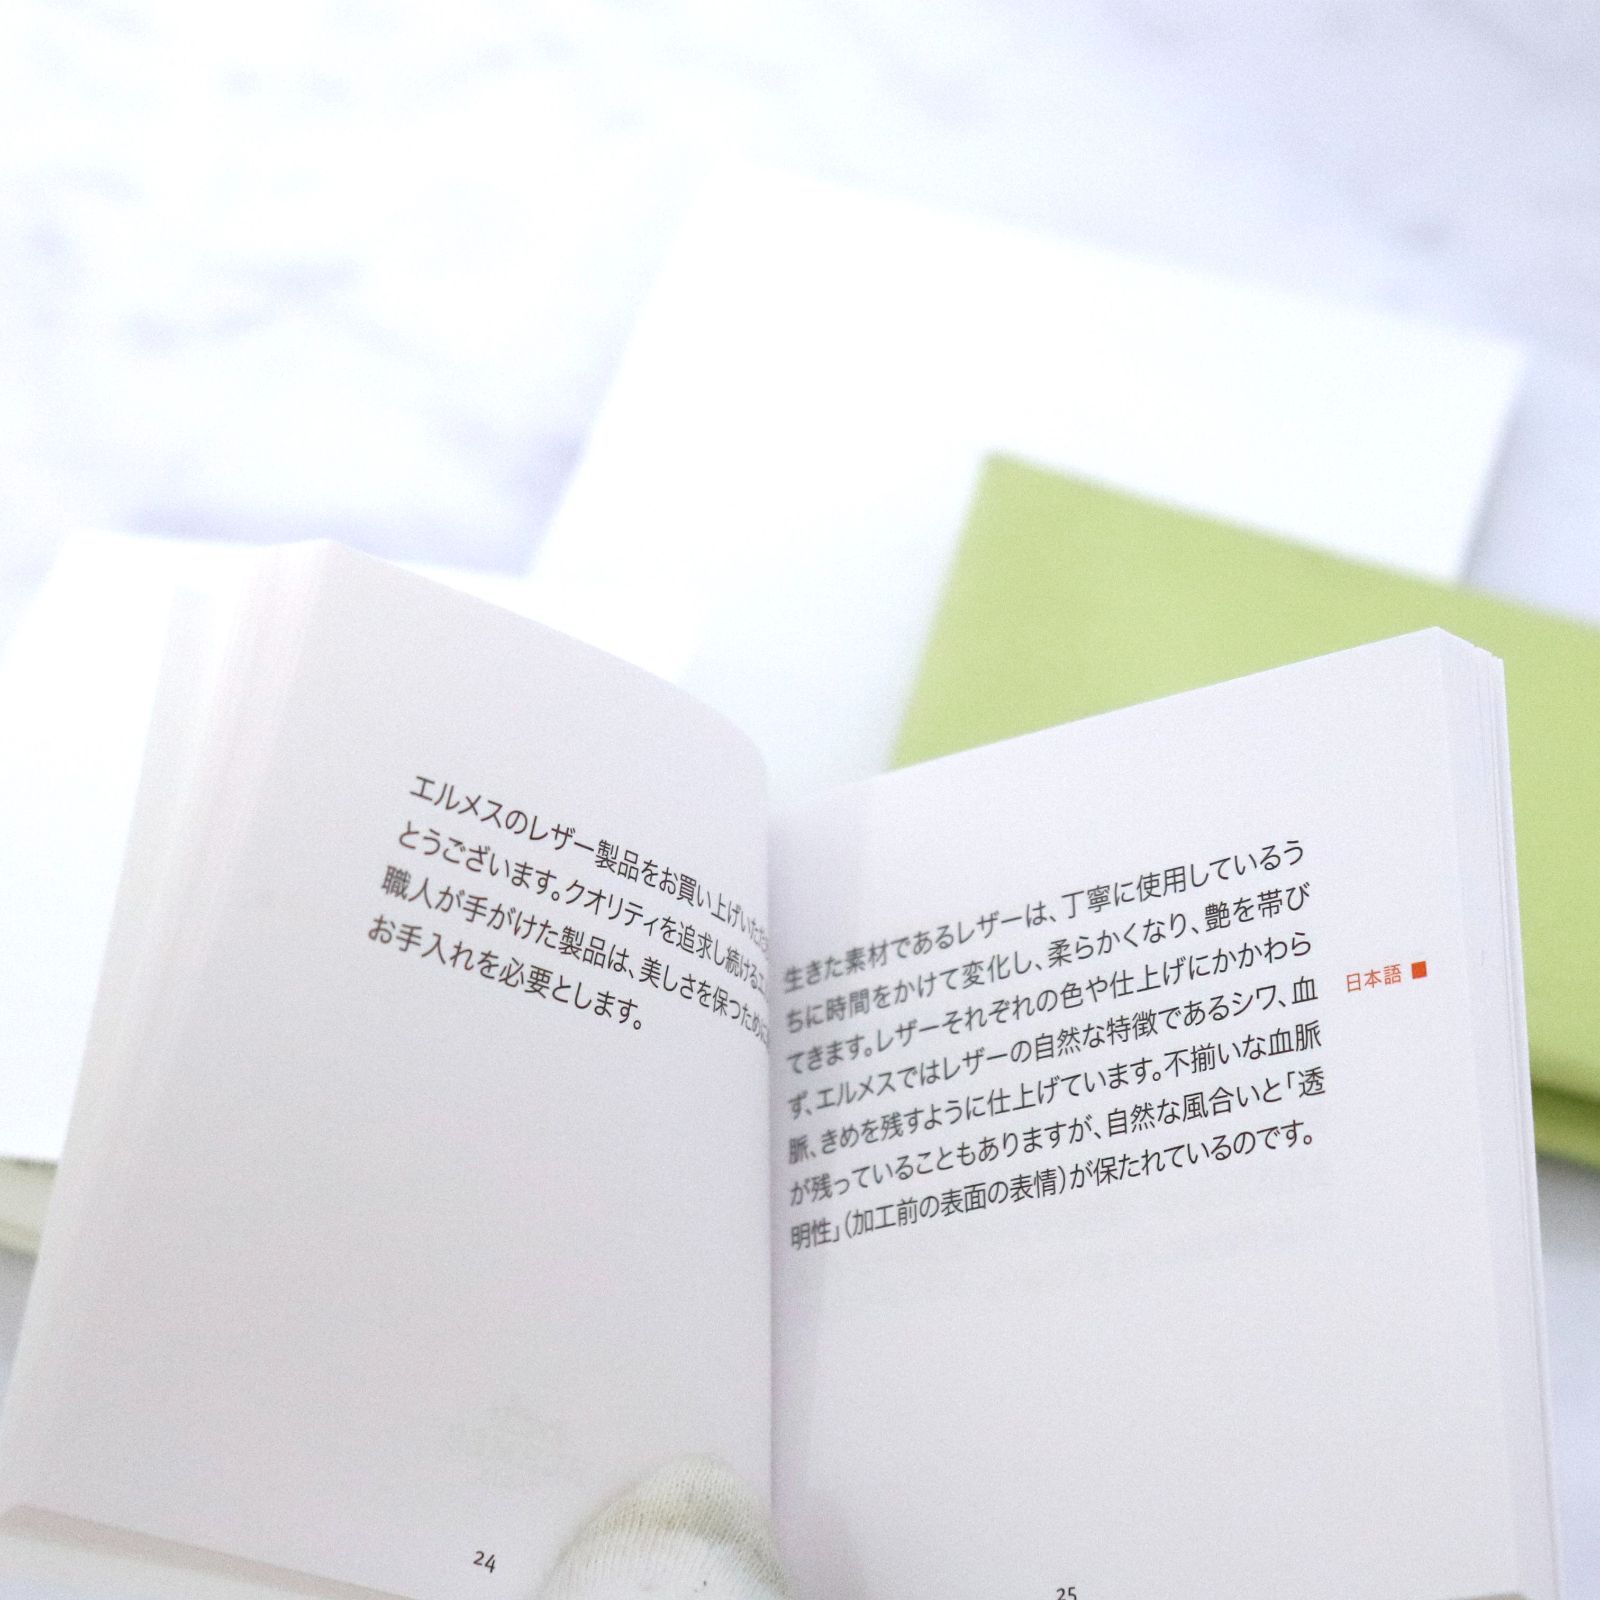 エルメスのレザー製品をお買い上げいただき
とうございます。クオリティを追求し続けるエ
職人が手がけた製品は、美しさを保つために
お手入れを必要とします。
24
生きた素材であるレザーは、丁寧に使用しているう
ちに時間をかけて変化し、柔らかくなり、艶を帯び
てきます。レザーそれぞれの色や仕上げにかかわら
ず、エルメスではレザーの自然な特徴であるシワ、血
脈、きめを残すように仕上げています。不揃いな血脈
が残っていることもありますが、自然な風合いと「透
明性」（加工前の表面の表情）が保たれているのです。
日本語
25